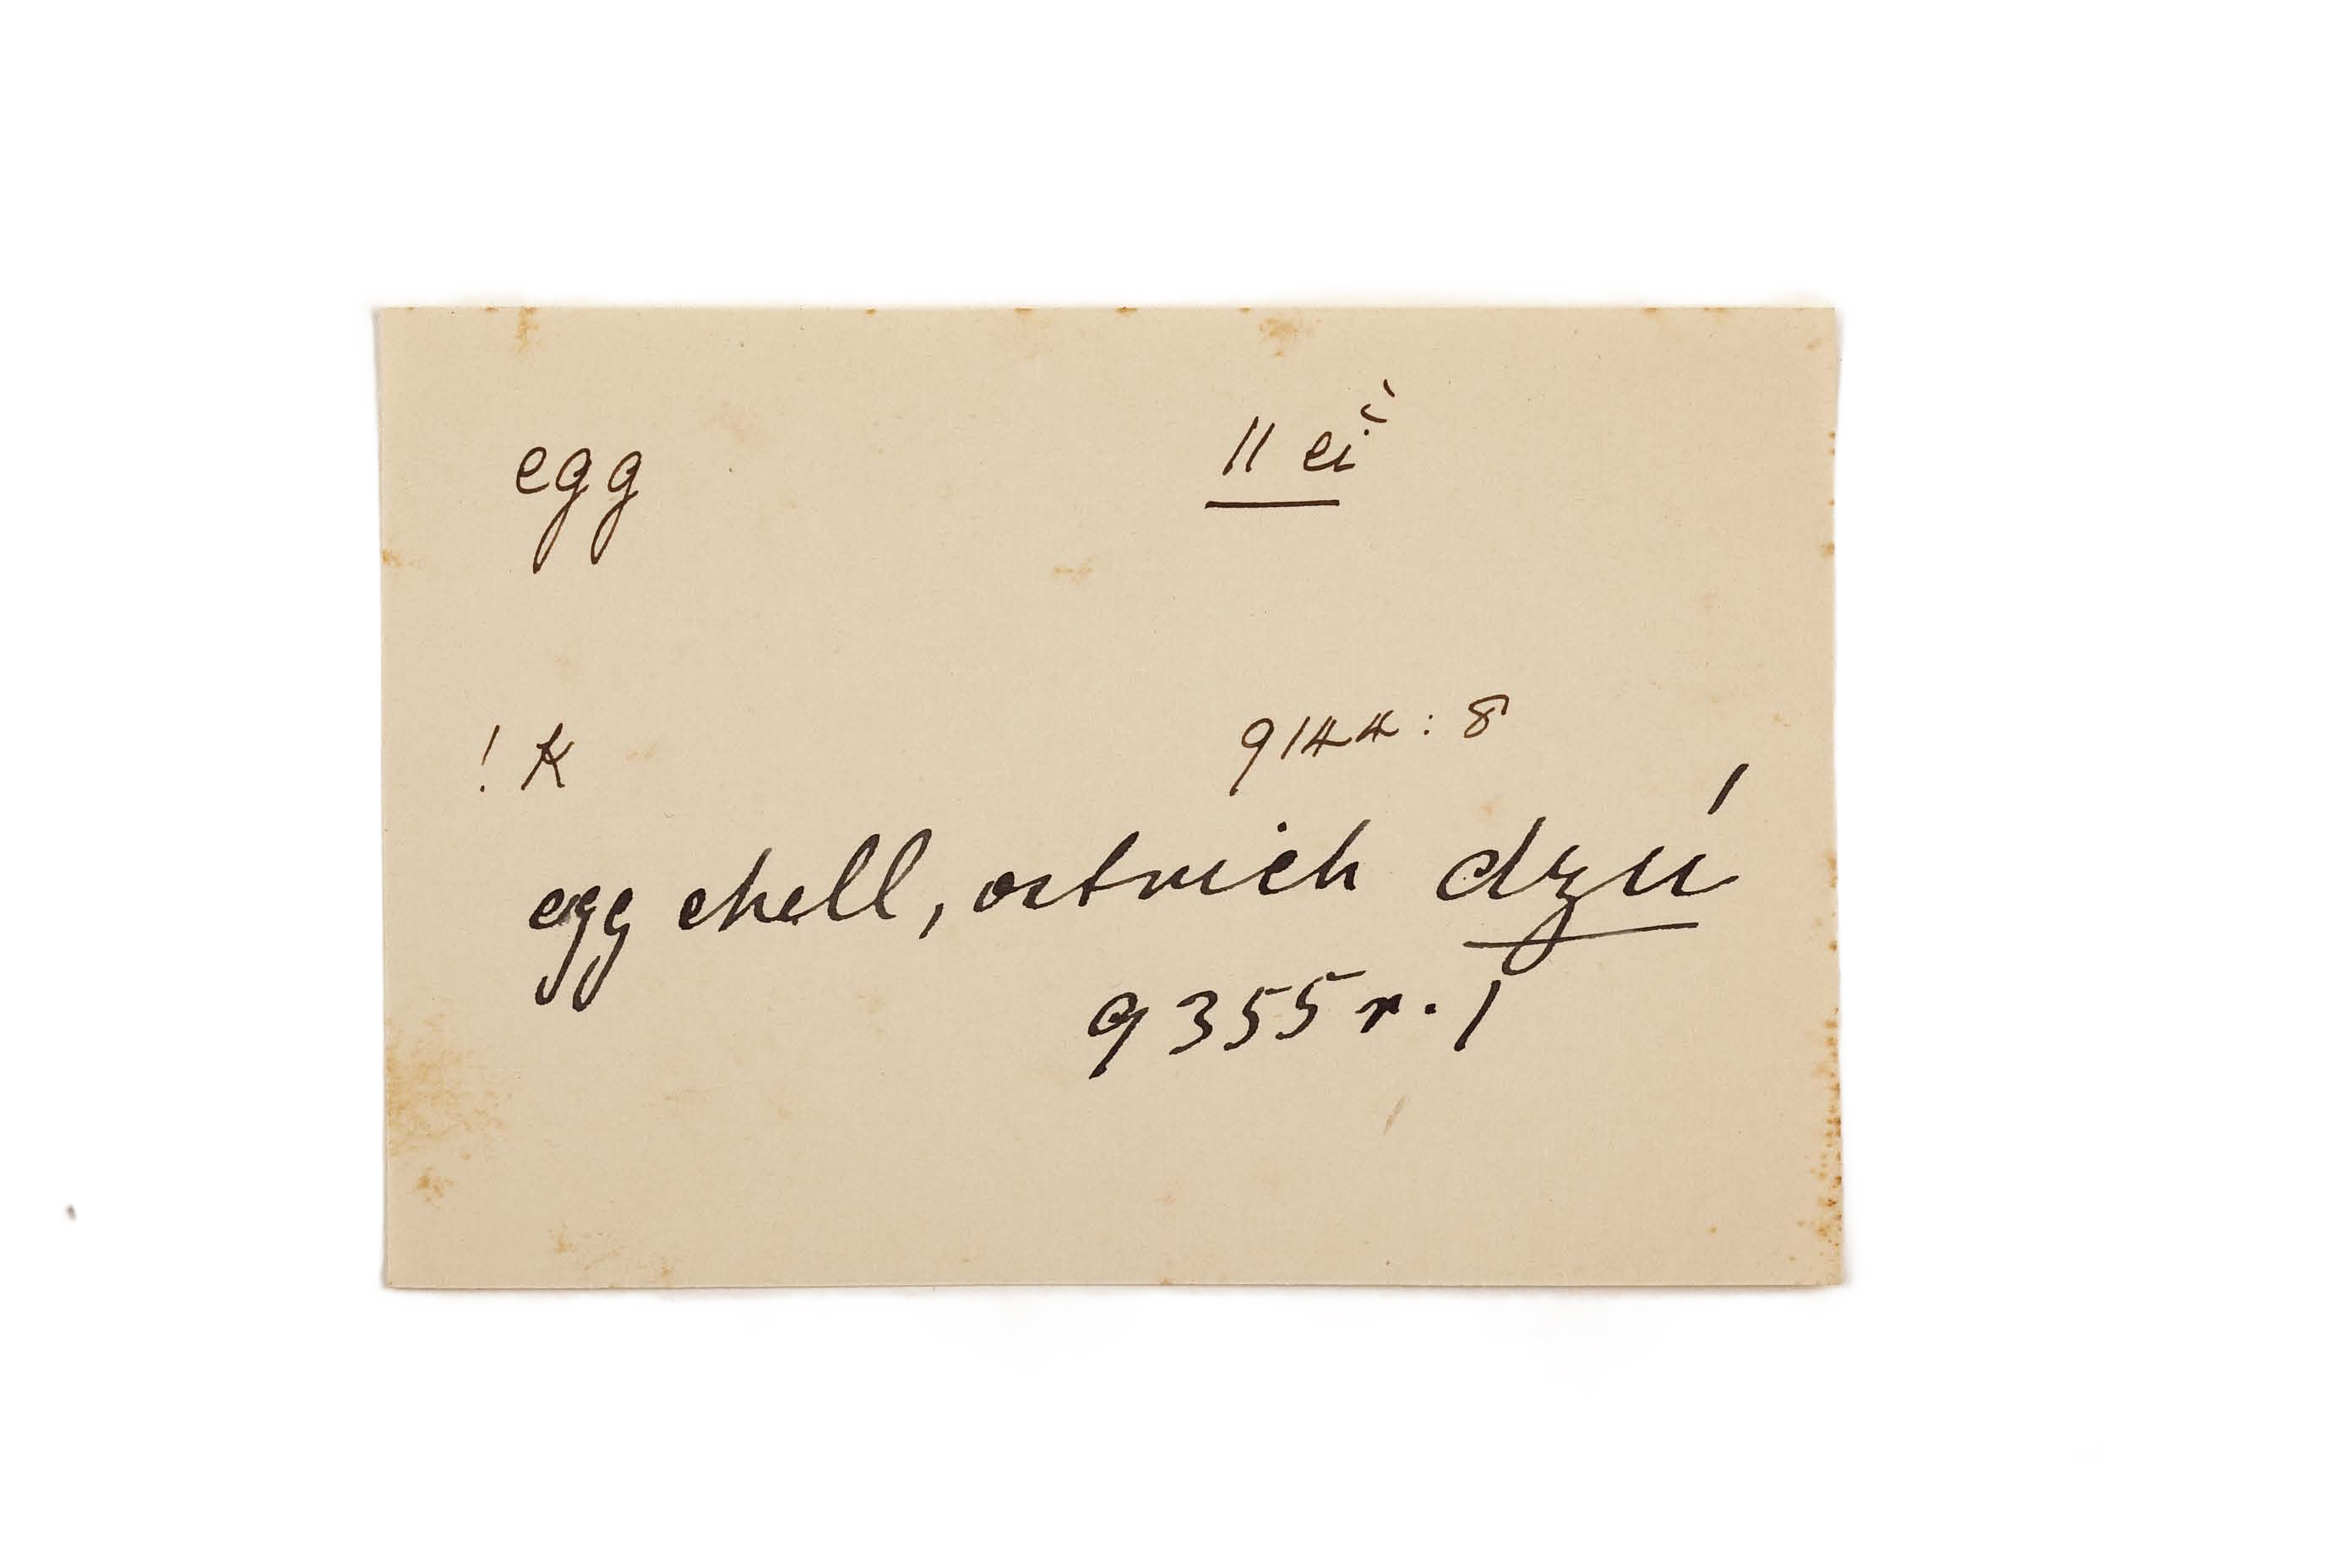 egg ǁ eí
! K 9144 : 8
egg shell, ostrich dzú
9355 r. 1